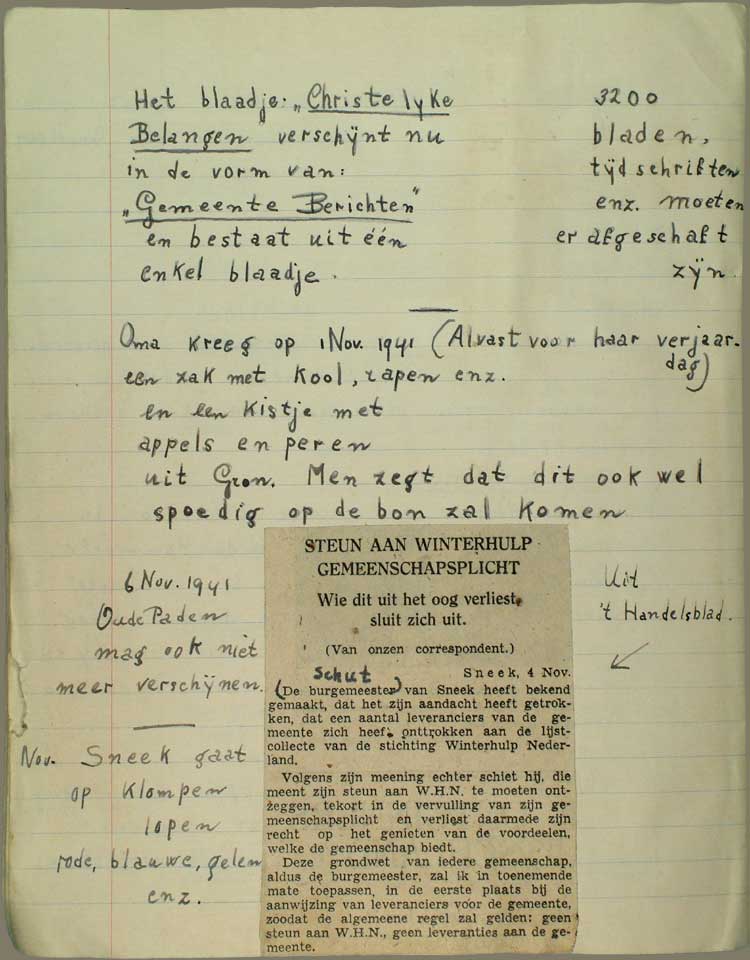 Het blaadje: „Christelyke
Belangen" verschÿnt nu
in de vorm van:
„Gemeente Berichten"
en bestaat uit één
enkel blaadje.
3200
bladen,
tÿdschriften
enz. moeten
er afgeschaft
zÿn.
Oma kreeg op 1 Nov. 1941 (Alvast voor haar verjaar-
dag)
een zak met kool, rapen enz.
en een kistje met
appels en peren
uit Gron. Men zegt dat dit ook wel
spoedig op de bon zal komen
6 Nov. 1941
Oude Paden
mag ook niet
meer verschÿnen.
Nov. Sneek gaat
op klompen
lopen
rode, blauwe, gelen
enz.
STEUN AAN WINTERHULP
GEMEENSCHAPSPLICHT
Wie dit uit het oog verliest,
sluit zich uit.
(Van onzen correspondent.)
Schut
Sneek, 4 Nov.
(De burgemeester) van Sneek heeft bekend
gemaakt, dat het zijn aandacht heeft getrok-
ken, dat een aantal leveranciers van de ge-
meente zich heeft onttrokken aan de lijst-
collecte van de stichting Winterhulp Neder-
land.
Volgens zijn meening echter schiet hij, die
meent zijn steun aan W.H.N. te moeten ont-
zeggen, tekort in de vervulling van zijn ge-
meenschapsplicht en verliest daarmede zijn
recht op het genieten van de voordeelen,
welke de gemeenschap biedt.
Deze grondwet van iedere gemeenschap,
aldus de burgemeester, zal ik in toenemende
mate toepassen, in de eerste plaats bij de
aanwijzing van leveranciers voor de gemeente,
zoodat de algemeene regel zal gelden: geen
steun aan W.H.N., geen leveranties aan de ge-
meente.
Uit
't Handelsblad.